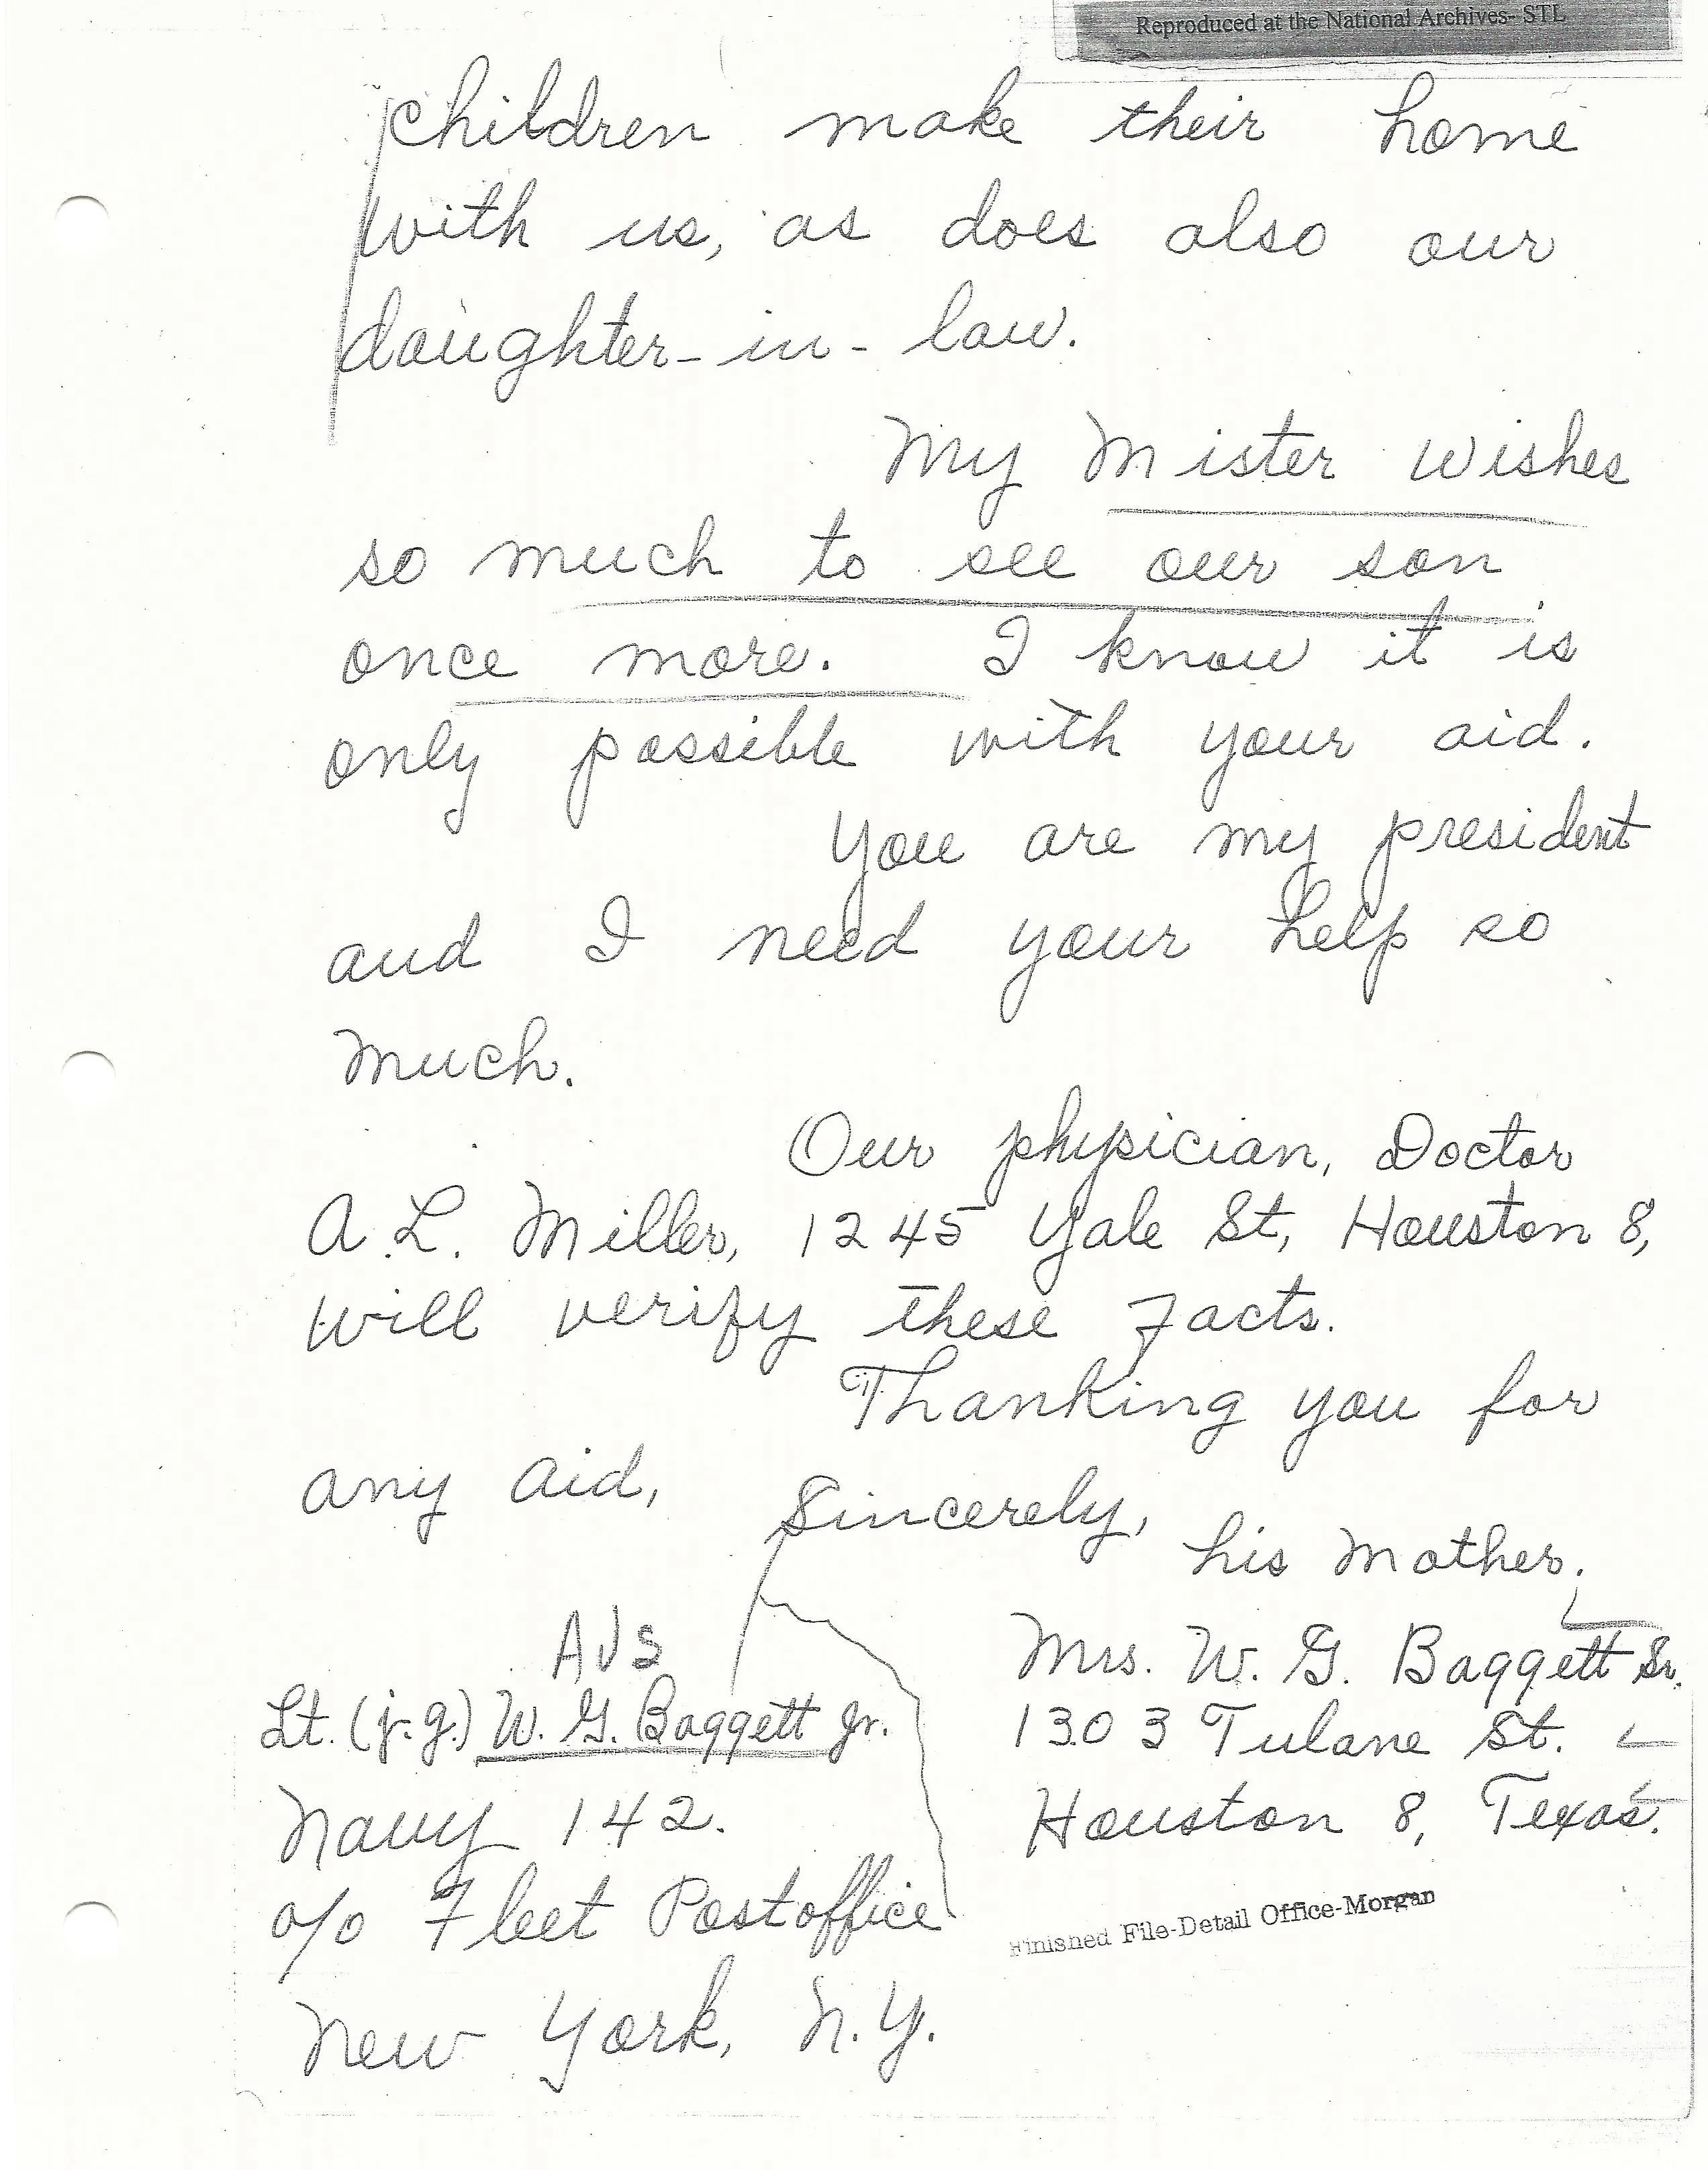 Reproduced at the National Archives- STL
children make their home
with us, as does also our
daughter-in-law.
My Mister wishes
so much to see our son
once more. I know it is
only possible with your aid.
You are my president
and I need your help so
much.
Our physician, Doctor
A.L. Miller, 1245 Yale St, Houston 8,
will verify these Facts.
Thanking you for
any aid,
Sincerely,
his Mother.
Mrs. W. G. Baggett Sr.
1303 Tulane St.
Houston 8, Texas.
AVS
Lt. (j.g.) W. G. Baggett Jr.
Navy 142.
o/o Fleet Postoffice
New York, N.Y.
Finished File-Detail Office-Morgan